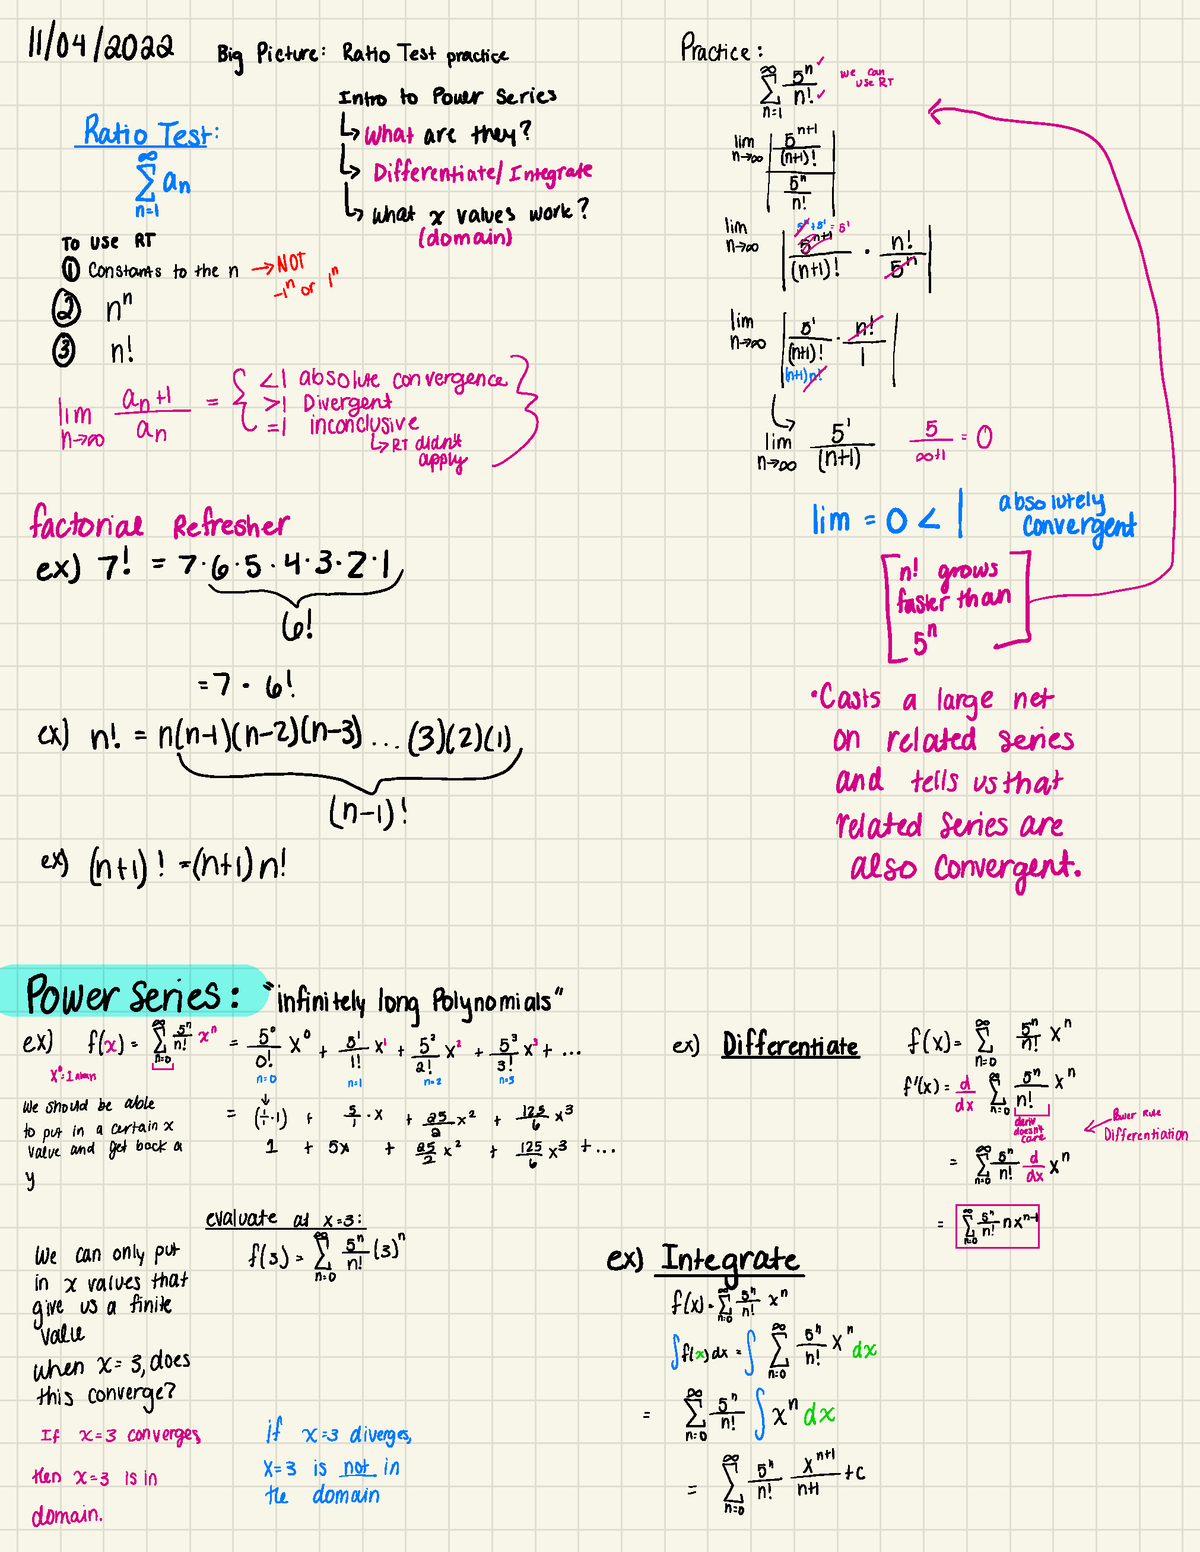 11/04/2022
Big Picture: Ratio Test practice
Intro to Power Series
↳ What are they?
↳ Differentiate/Integrate
↳ what x values work?
(domain)
Ratio Test:
∞
∑ an
n=1
To use RT
① Constants to the n → NOT
-1^n or 1^n
② n^n
③ n!
lim n→∞ an+1/an = { <1 absolute convergence
>1 Divergent
=1 inconclusive
↳ RT didn't
apply
factorial Refresher
ex) 7! = 7·6·5·4·3·2·1
6!
= 7 · 6!
ex) n! = n(n-1)(n-2)(n-3)...(3)(2)(1)
(n-1)!
ex) (n+1)! = (n+1) n!
Practice:
∞ ∑ n=1 5^n/n! ✓ ✓ we can
use RT
lim n→∞ | (5^(n+1)/(n+1)!) / (5^n/n!) |
5^n + 5^1 = 5^1
lim n→∞ | 5^(n+1)/(n+1)! · n!/5^n |
lim n→∞ | 5^1/(n+1)! · n!/1 |
(n+1)n!
↳ lim n→∞ 5^1/(n+1) 5/∞+1 = 0
lim = 0 < 1 absolutely
convergent
[n! grows
faster than
5^n]
· Casts a large net
on related series
and tells us that
related series are
also convergent.
Power series: "infinitely long Polynomials"
ex) f(x) = ∞ ∑ n=0 5^n/n! x^n = 5^0/0! x^0 + 5^1/1! x^1 + 5^2/2! x^2 + 5^3/3! x^3 + ...
n=0 n=1 n=2 n=3
x^0=1
We should be able
to put in a certain x
value and get back a
y
= (1/1·1) + 5/1·x + 25/2 x^2 + 125/6 x^3
1 + 5x + 25/2 x^2 + 125/6 x^3 + ...
evaluate at x=3:
f(3) = ∞ ∑ n=0 5^n/n! (3)^n
We can only put
in x values that
give us a finite
value
when x=3, does
this converge?
If x=3 converges,
then x=3 is in
domain.
if x=3 diverges,
x=3 is not in
the domain
ex) Differentiate
f(x) = ∞ ∑ n=0 5^n/n! x^n
f'(x) = d/dx ∞ ∑ n=0 5^n/n! x^n
deriv
doesn't
care
Power Rule
Differentiation
= ∞ ∑ n=0 5^n/n! d/dx x^n
= ∞ ∑ n=0 5^n/n! nx^(n-1)
ex) Integrate
f(x) = ∞ ∑ n=0 5^n/n! x^n
∫f(x)dx = ∫ ∞ ∑ n=0 5^n/n! x^n dx
= ∞ ∑ n=0 5^n/n! ∫ x^n dx
= ∞ ∑ n=0 5^n/n! x^(n+1)/n+1 + c